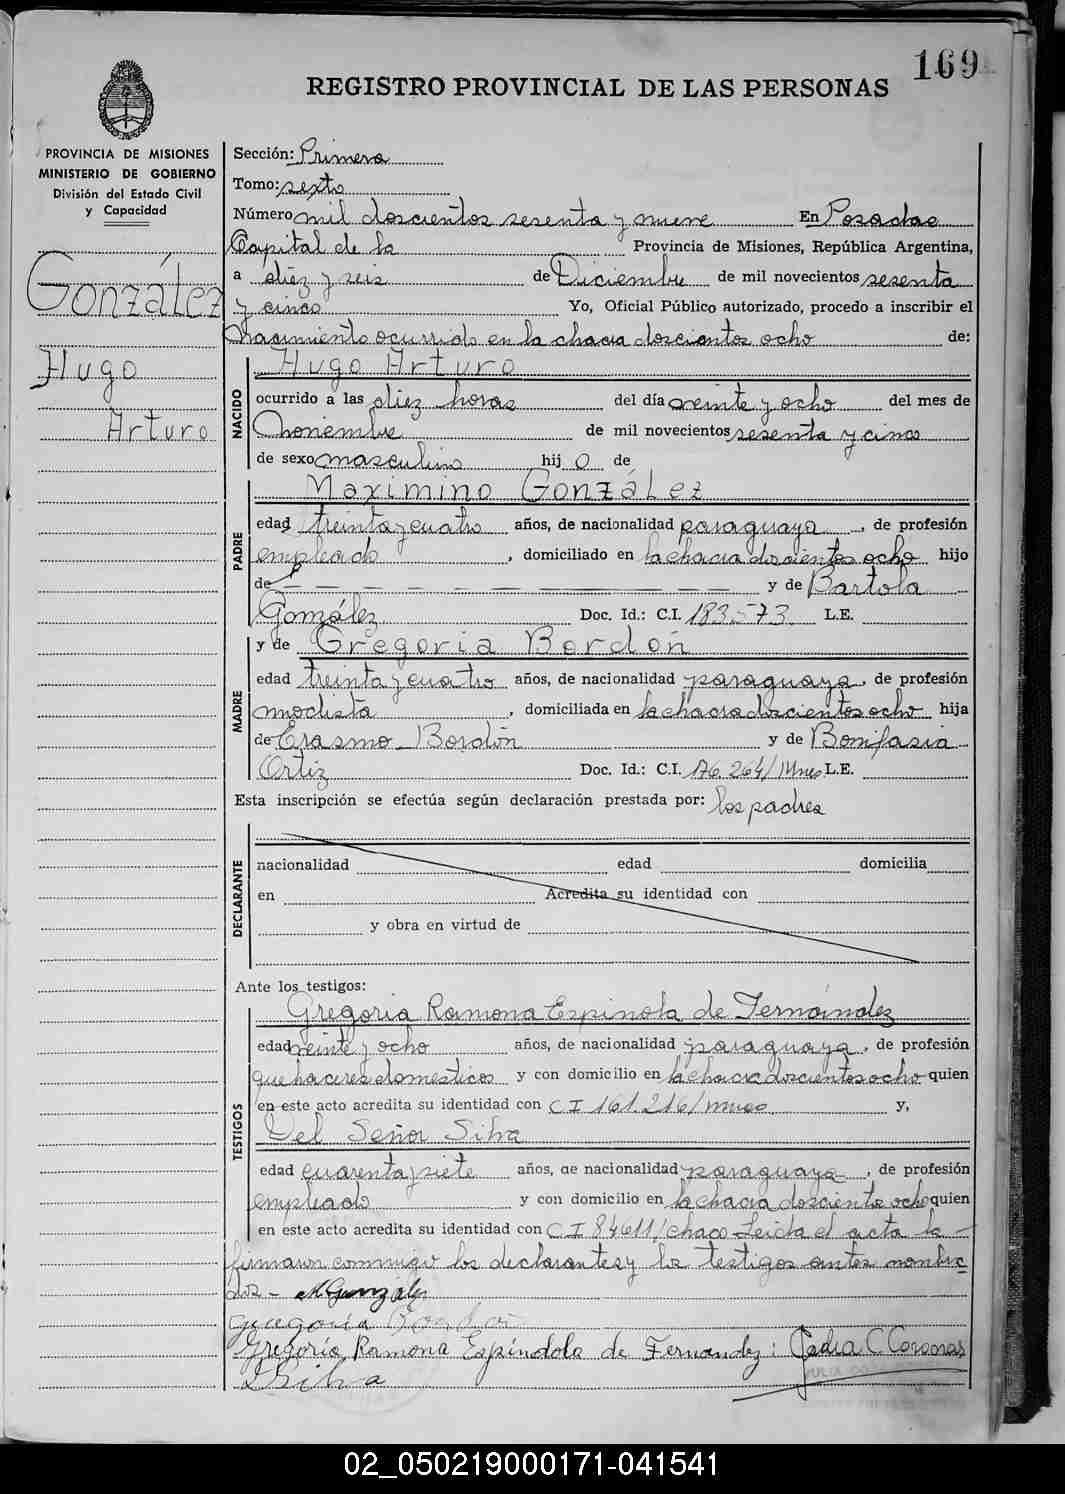 169
REGISTRO PROVINCIAL DE LAS PERSONAS
PROVINCIA DE MISIONES
MINISTERIO DE GOBIERNO
División del Estado Civil
y Capacidad
González
Hugo
Arturo
Sección: Primera
Tomo: sexto
Número mil doscientos sesenta y nueve En Posadas
Capital de la Provincia de Misiones, República Argentina,
a diez y seis de Diciembre de mil novecientos sesenta
y cinco Yo, Oficial Público autorizado, procedo a inscribir el
Nacimiento ocurrido en la chacra doscientos ocho de:
NACIDO
Hugo Arturo
ocurrido a las diez horas del día veinte y ocho del mes de
Noviembre de mil novecientos sesenta y cinco
de sexo masculino hij o de
PADRE
Maximino González
edad treinta y cuatro años, de nacionalidad paraguaya, de profesión
empleado, domiciliado en la chacra doscientos ocho hijo
de — — — — — — — — y de Bartola
González Doc. Id.: C.I. 183573 L.E.
MADRE
y de Gregoria Bordón
edad treinta y cuatro años, de nacionalidad paraguaya, de profesión
modista, domiciliada en la chacra doscientos ocho hija
de Erasmo Bordón y de Bonifasia
Ortiz Doc. Id.: C.I. 176.264/Mnes L.E.
Esta inscripción se efectúa según declaración prestada por: los padres
DECLARANTE
nacionalidad edad domicilia
en Acredita su identidad con
y obra en virtud de
Ante los testigos:
TESTIGOS
Gregoria Ramona Espinola de Fernández
edad veinte y ocho años, de nacionalidad paraguaya, de profesión
quehaceres domesticos y con domicilio en la chacra doscientos ocho quien
en este acto acredita su identidad con C I 161.216/mnes y,
Del Señor Silva
edad cuarenta y siete años, de nacionalidad paraguaya, de profesión
empleado y con domicilio en la chacra doscientos ocho quien
en este acto acredita su identidad con C I 84611/chaco Leida el acta la
firmaron conmigo los declarantes y los testigos antes nombra
dos - M González
Gregoria Bordon
Gregoria Ramona Espíndola de Fernandez: C Coronas
Silva
02_050219000171-041541